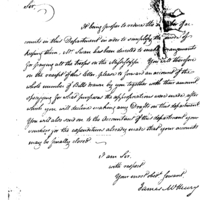 Sir,
It being proper to reduce the
in this Department in order to simplify the mode of
keeping them, Mr Swan has been directed to make arrangements
for paying all the troops on the Mississippi. You will therefore
on the receipt of this letter please to forward an account of the
whole number of Bills drawn by you together with their amount
specifying for what purposes the appropriations were made after
which you will decline making any Draft on this department
You will also send on to the accountant of this department your
vouchers for the expenditures already made that your accounts
may be finally closed.
I am Sir,
with respect
Your most obed. Servant,
James McHenry